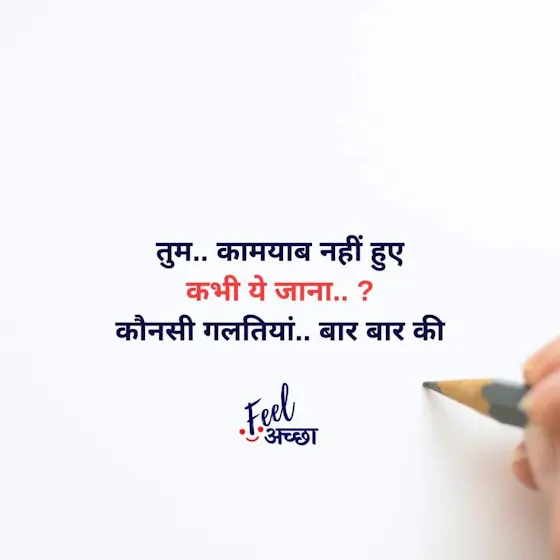 तुम.. कामयाब नहीं हुए
कभी ये जाना.. ?
कौनसी गलतियां.. बार बार की
Feel
अच्छा